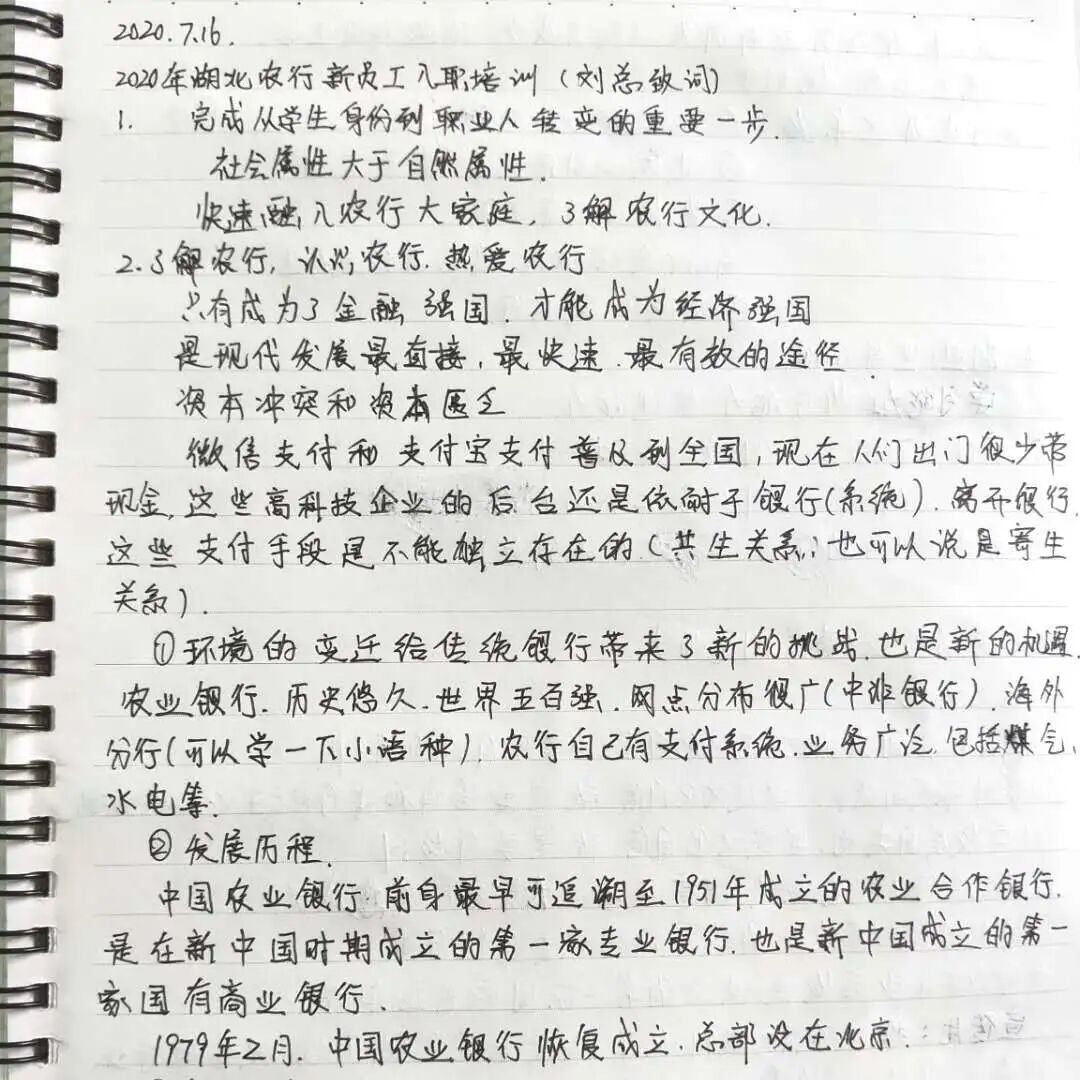 2020.7.16.
2020年湖北农行新员工入职培训(刘总致词)
1. 完成从学生身份到职业人转变的重要一步.
社会属性大于自然属性.
快速融入农行大家庭,了解农行文化.
2.了解农行,认识农行.热爱农行
只有成为了金融强国.才能成为经济强国
是现代发展最直接,最快速.最有效的途径.
资本冲突和资本匮乏
微信支付和支付宝支付普及到全国,现在人们出门很少带
现金,这些高科技企业的后台还是依耐于银行(系统).离开银行,
这些支付手段是不能独立存在的(共生关系;也可以说是寄生
关系).
①环境的变迁给传统银行带来了新的挑战.也是新的机遇.
农业银行.历史悠久.世界五百强.网点分布很广(中非银行).海外
分行(可以学一下小语种).农行自己有支付系统.业务广泛.包括煤气、
水电等.
②发展历程.
中国农业银行前身最早可追溯至1951年成立的农业合作银行.
是在新中国时期成立的第一家专业银行.也是新中国成立的第一
家国有商业银行.
1979年2月.中国农业银行恢复成立.总部设在北京.